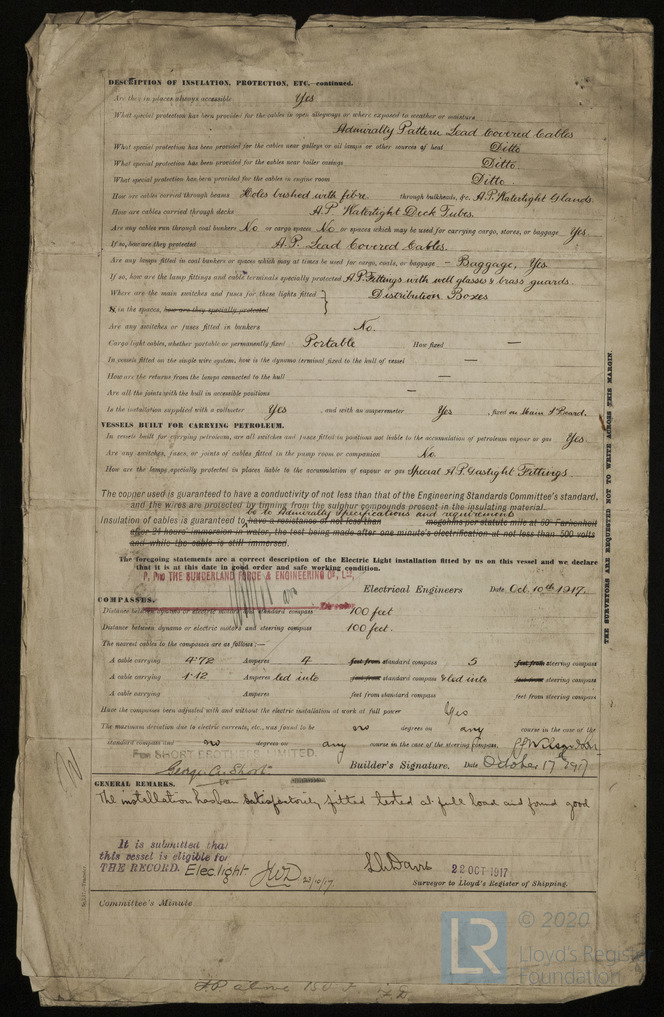 DESCRIPTION OF INSULATION, PROTECTION, ETC.—continued.
Are they in places always accessible Yes
What special protection has been provided for the cables in open alleyways or where exposed to weather or moisture
Admiralty Pattern Lead Covered Cables
What special protection has been provided for the cables near galleys or oil lamps or other sources of heat Ditto
What special protection has been provided for the cables near boiler casings Ditto.
What special protection has been provided for the cables in engine room Ditto
How are cables carried through beams Holes bushed with fibre through bulkheads, &c. A.P. Watertight Glands.
How are cables carried through decks A.P. Watertight Deck Tubes.
Are any cables run through coal bunkers No or cargo spaces No or spaces which may be used for carrying cargo, stores, or baggage Yes.
If so, how are they protected A.P. Lead Covered Cables.
Are any lamps fitted in coal bunkers or spaces which may at times be used for cargo, coals, or baggage — Baggage, Yes.
If so, how are the lamp fittings and cable terminals specially protected A.P. Fittings with well glasses & brass guards.
Where are the main switches and fuses for these lights fitted Distribution Boxes
in the spaces, how are they specially protected
Are any switches or fuses fitted in bunkers No.
Cargo light cables, whether portable or permanently fixed Portable How fixed —
In vessels fitted on the single wire system, how is the dynamo terminal fixed to the hull of vessel —
How are the returns from the lamps connected to the hull —
Are all the joints with the hull in accessible positions —
Is the installation supplied with a voltmeter Yes , and with an amperemeter Yes , fixed on Main S/Board.
VESSELS BUILT FOR CARRYING PETROLEUM.
In vessels built for carrying petroleum, are all switches and fuses fitted in positions not liable to the accumulation of petroleum vapour or gas Yes.
Are any switches, fuses, or joints of cables fitted in the pump room or companion No
How are the lamps specially protected in places liable to the accumulation of vapour or gas Special A.P. Gastight Fittings.
The copper used is guaranteed to have a conductivity of not less than that of the Engineering Standards Committee's standard,
and the wires are protected by tinning from the sulphur compounds present in the insulating material.
be to Admiralty Specifications and requirements
Insulation of cables is guaranteed to have a resistance of not less than megohms per statute mile at 60° Farhenheit
after 24 hours' immersion in water, the test being made after one minute's electrification at not less than 500 volts
and while the cable is still immersed.
The foregoing statements are a correct description of the Electric Light installation fitted by us on this vessel and we declare
that it is at this date in good order and safe working condition.
P. Pro THE SUNDERLAND FORGE & ENGINEERING Co., Ld.,
Electrical Engineers Date Oct. 10th 1917.
COMPASSES.
Distance between dynamo or electric motors and standard compass 100 feet
Distance between dynamo or electric motors and steering compass 100 feet.
The nearest cables to the compasses are as follows:—
A cable carrying 4.72 Amperes 4 feet from standard compass 5 feet from steering compass
A cable carrying 1.12 Amperes led into feet from standard compass & led into feet from steering compass
A cable carrying Amperes feet from standard compass feet from steering compass
Have the compasses been adjusted with and without the electric installation at work at full power Yes
The maximum deviation due to electric currents, etc., was found to be no degrees on any course in the case of the
standard compass and no degrees on any course in the case of the steering compass.
FOR SHORT BROTHERS LIMITED.
Builder's Signature. Date October 17th 1917
GENERAL REMARKS.
The installation has been satisfactorily fitted tested at full load and found good
It is submitted that
this vessel is eligible for
THE RECORD. Elec. light JWD 23/10/17
22 OCT 1917
Surveyor to Lloyd's Register of Shipping.
Committee's Minute
THE SURVEYORS ARE REQUESTED NOT TO WRITE ACROSS THIS MARGIN.
LR
© 2020
Lloyd's Register
Foundation